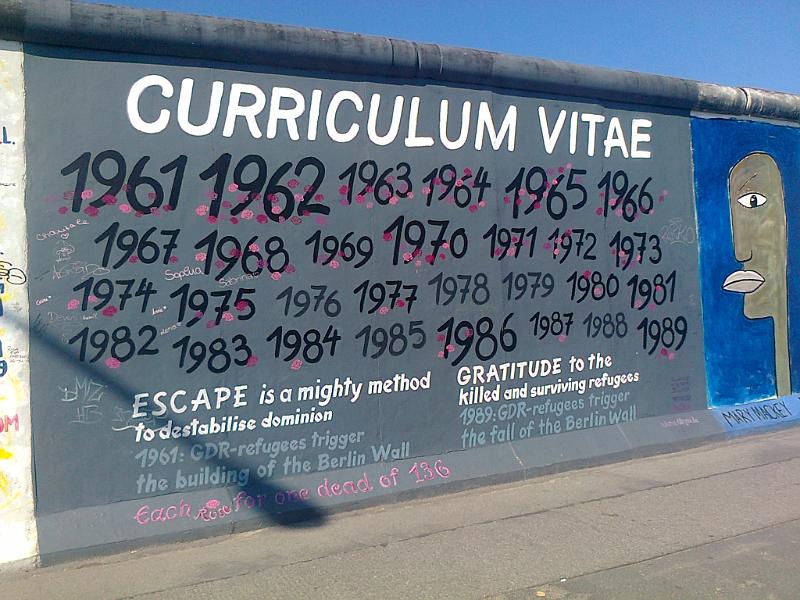 CURRICULUM VITAE
1961 1962 1963 1964 1965 1966
1967 1968 1969 1970 1971 1972 1973
1974 1975 1976 1977 1978 1979 1980 1981
1982 1983 1984 1985 1986 1987 1988 1989
ESCAPE is a mighty method
to destabilise dominion
1961: GDR-refugees trigger
the building of the Berlin Wall
GRATITUDE to the
killed and surviving refugees
1989: GDR-refugees trigger
the fall of the Berlin Wall
Each for one dead of 136
MARY MACKEY
Sophia
Sabrina